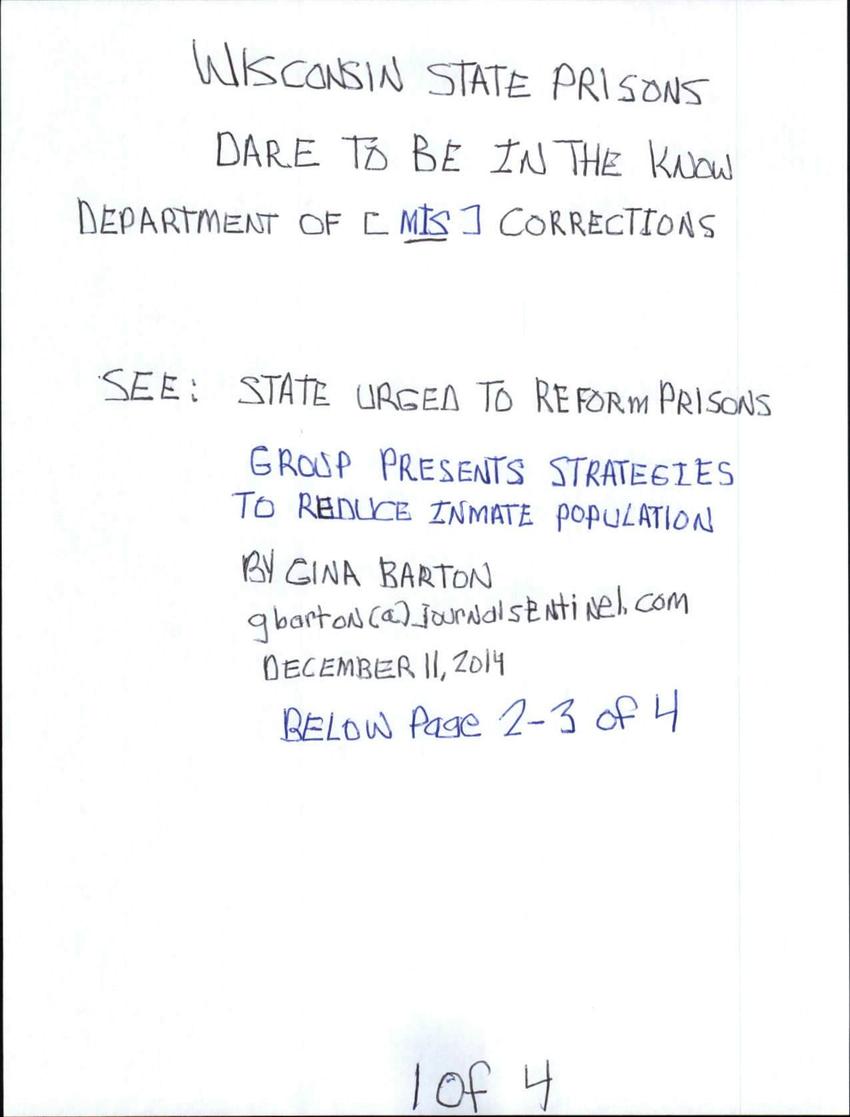 WISCONSIN STATE PRISONS
DARE TO BE IN THE KNOW
DEPARTMENT OF [MIS] CORRECTIONS
SEE: STATE URGED TO REFORM PRISONS
GROUP PRESENTS STRATEGIES
TO REDUCE INMATE POPULATION
BY GINA BARTON
gbarton(a)journalsentinel.com
DECEMBER 11, 2014
BELOW Page 2-3 of 4
1 of 4